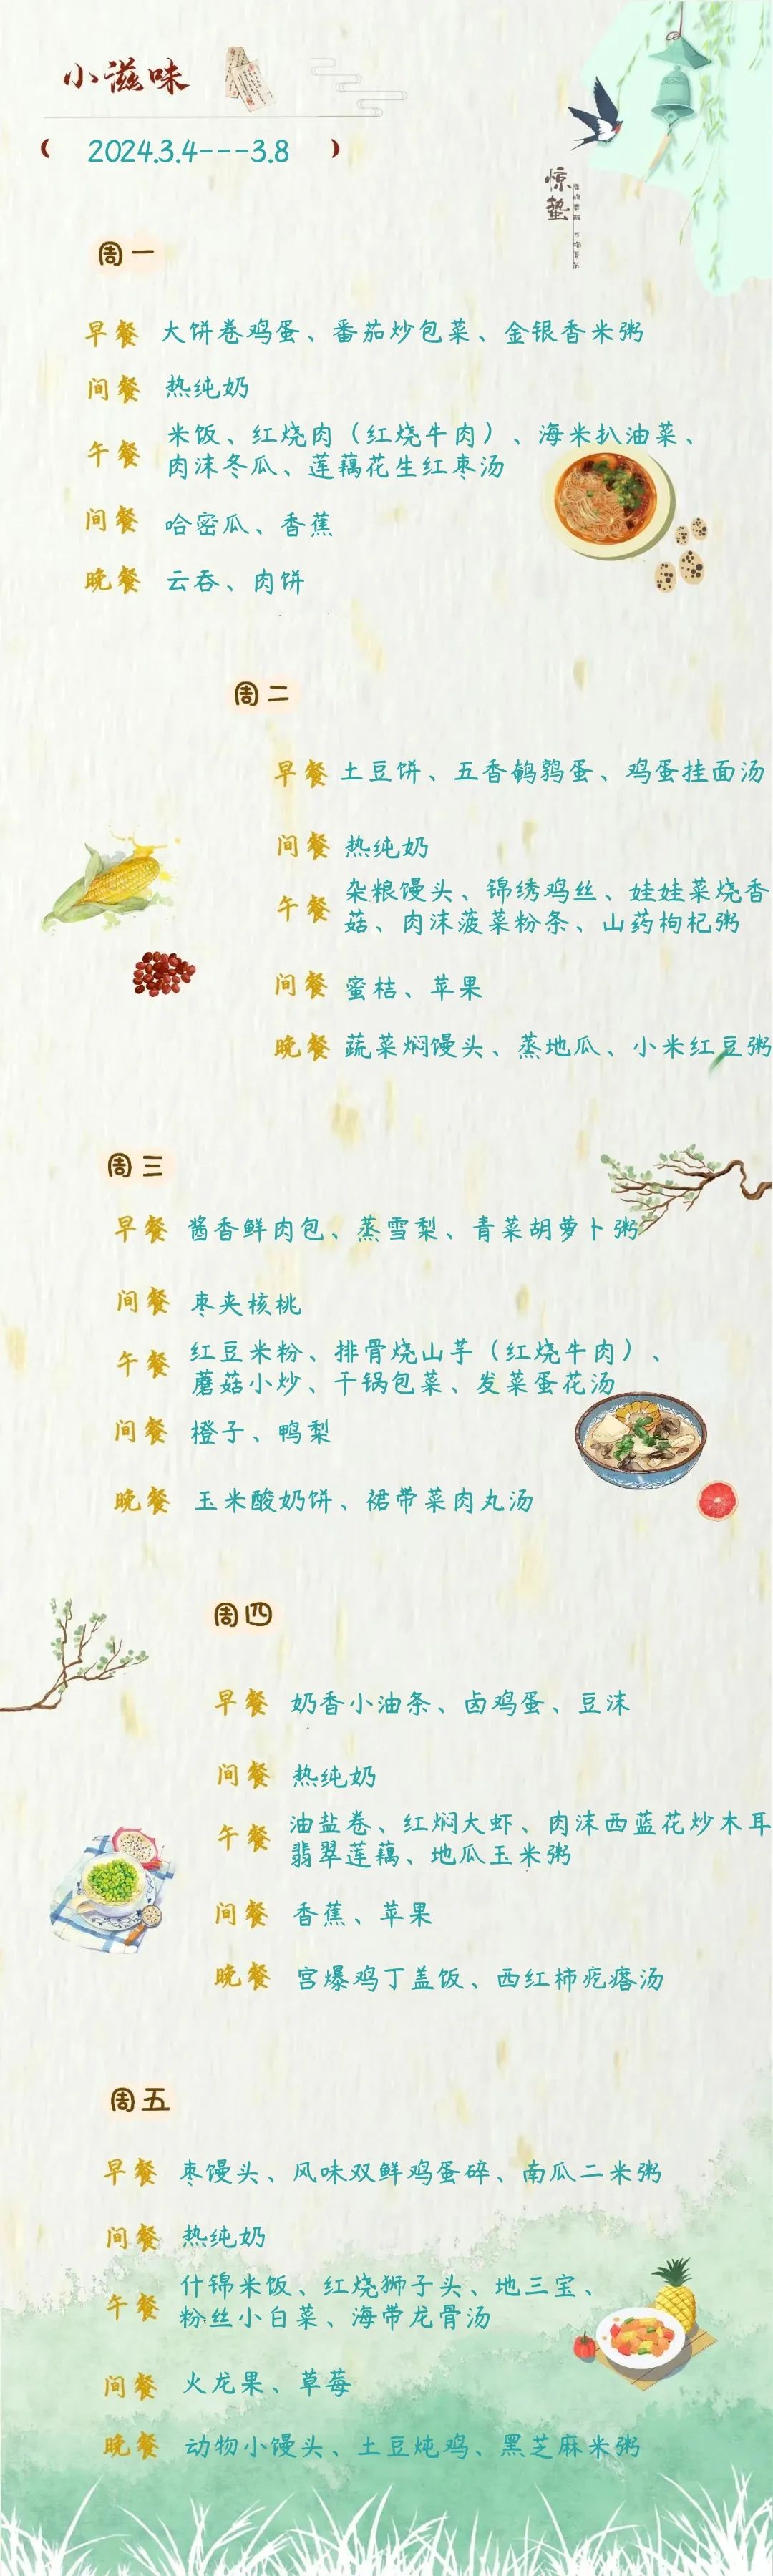 小滋味
( 2024.3.4---3.8 )
惊蛰
周一
早餐 大饼卷鸡蛋、番茄炒包菜、金银香米粥
间餐 热纯奶
午餐 米饭、红烧肉（红烧牛肉）、海米扒油菜、
肉沫冬瓜、莲藕花生红枣汤
间餐 哈密瓜、香蕉
晚餐 云吞、肉饼
周二
早餐 土豆饼、五香鹌鹑蛋、鸡蛋挂面汤
间餐 热纯奶
午餐 杂粮馒头、锦绣鸡丝、娃娃菜烧香
菇、肉沫菠菜粉条、山药枸杞粥
间餐 蜜桔、苹果
晚餐 蔬菜焖馒头、蒸地瓜、小米红豆粥
周三
早餐 酱香鲜肉包、蒸雪梨、青菜胡萝卜粥
间餐 枣夹核桃
午餐 红豆米粉、排骨烧山芋（红烧牛肉）、
蘑菇小炒、干锅包菜、发菜蛋花汤
间餐 橙子、鸭梨
晚餐 玉米酸奶饼、裙带菜肉丸汤
周四
早餐 奶香小油条、卤鸡蛋、豆沫
间餐 热纯奶
午餐 油盐卷、红焖大虾、肉沫西蓝花炒木耳
翡翠莲藕、地瓜玉米粥
间餐 香蕉、苹果
晚餐 宫爆鸡丁盖饭、西红柿疙瘩汤
周五
早餐 枣馒头、风味双鲜鸡蛋碎、南瓜二米粥
间餐 热纯奶
午餐 什锦米饭、红烧狮子头、地三宝、
粉丝小白菜、海带龙骨汤
间餐 火龙果、草莓
晚餐 动物小馒头、土豆炖鸡、黑芝麻米粥